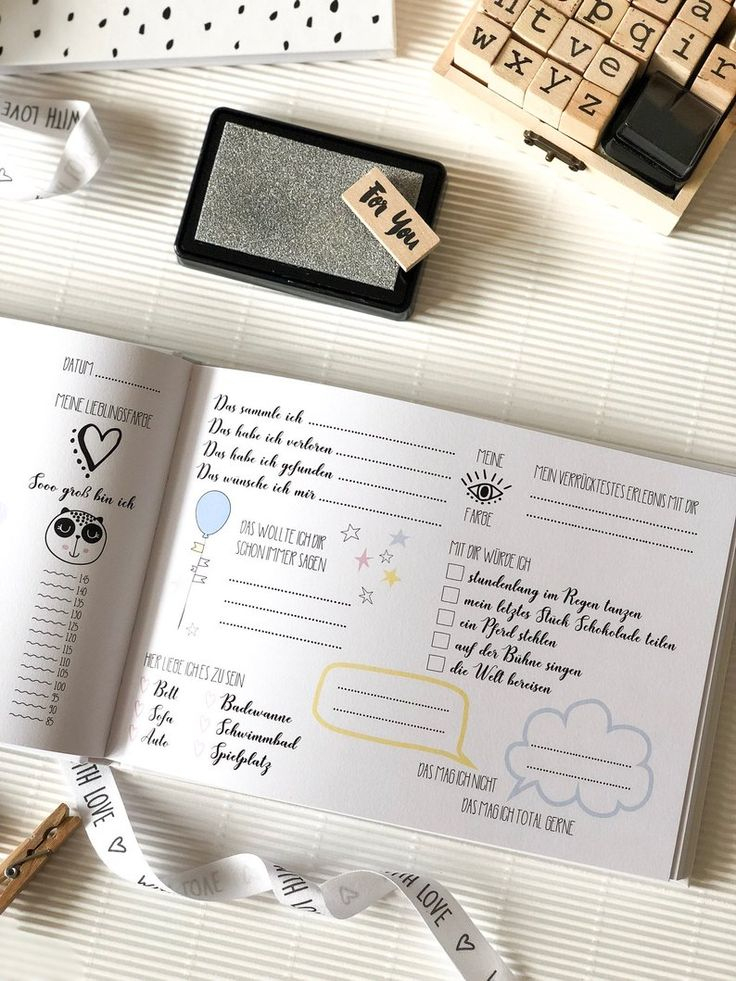 WITH LOVE
p q r
t u v e
w x y z
For You
DATUM
MEINE LIEBLINGSFARBE
Sooo groß bin ich
145
140
135
130
125
120
115
110
105
100
95
90
85
Das sammle ich
Das habe ich verloren
Das habe ich gefunden
Das wünsche ich mir
DAS WOLLTE ICH DIR
SCHON IMMER SAGEN
HIER LIEBE ICH ES ZU SEIN
Bett
Sofa
Auto
Badewanne
Schwimmbad
Spielplatz
MEINE
FARBE
MEIN VERRÜCKTESTES ERLEBNIS MIT DIR
MIT DIR WÜRDE ICH
stundenlang im Regen tanzen
mein letztes Stück Schokolade teilen
ein Pferd stehlen
auf der Bühne singen
die Welt bereisen
DAS MAG ICH NICHT
DAS MAG ICH TOTAL GERNE
WITH LOVE
WITH LOVE
WITH LOVE